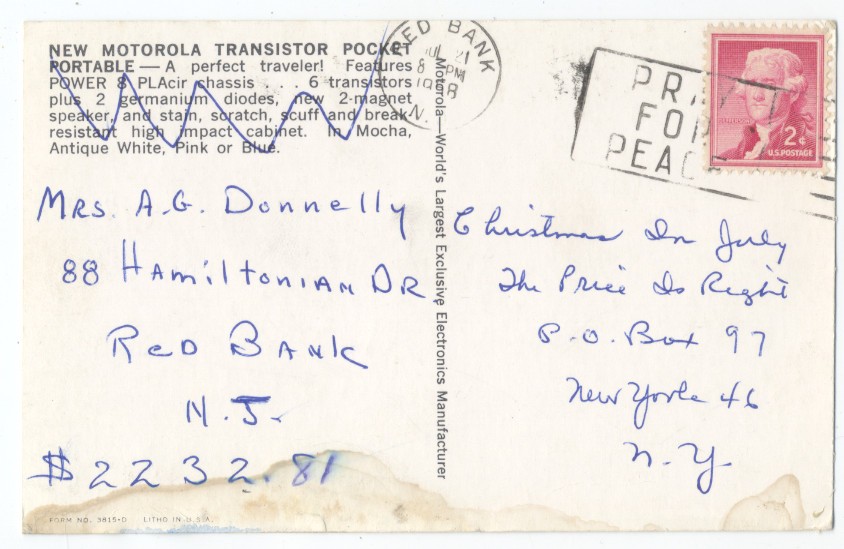 NEW MOTOROLA TRANSISTOR POCKET
PORTABLE — A perfect traveler! Features
POWER 8 PLAcir chassis . . . 6 transistors
plus 2 germanium diodes, new 2-magnet
speaker, and stain, scratch, scuff and break
resistant high impact cabinet. In Mocha,
Antique White, Pink or Blue.
Mrs. A.G. Donnelly
88 Hamiltonian DR
Red Bank
N.J.
$2232.81
FORM NO. 3815-D LITHO IN U.S.A.
Motorola—World's Largest Exclusive Electronics Manufacturer
RED BANK
JUL 21
8 PM
1958
N.
PRAY
FOR
PEACE
2¢
U.S. POSTAGE
Christmas In July
The Price Is Right
P.O. Box 97
New York 46
N.Y.